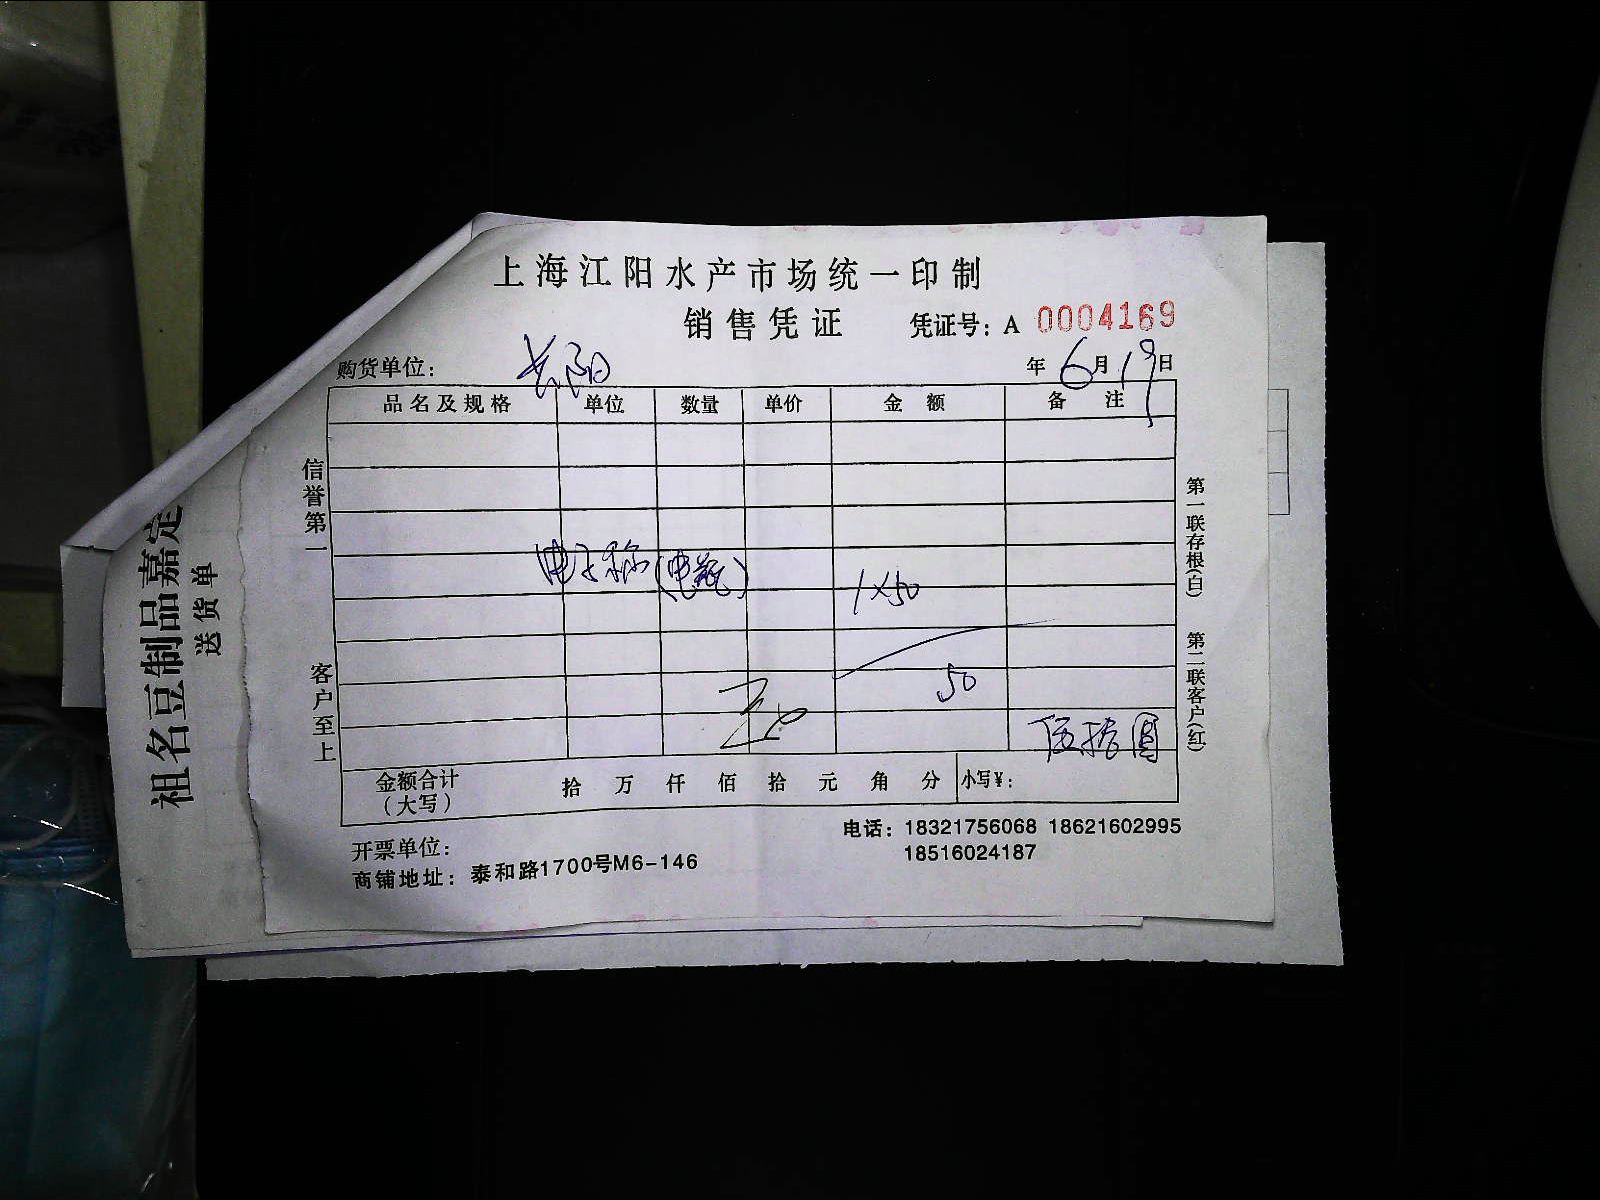 上海江阳水产市场统一印制
销售凭证 凭证号：A 0004169
购货单位： 长阳 年 6月 19日
品名及规格 单位 数量 单价 金额 备注
电子称（电瓶） 1×50
50
伍拾圆
金额合计（大写） 拾 万 仟 佰 拾 元 角 分 小写¥：
开票单位：
电话：18321756068 18621602995
18516024187
商铺地址：泰和路1700号M6-146
信誉第一
客户至上
第一联存根(白)
第二联客户(红)
祖名豆制品嘉定
送货单